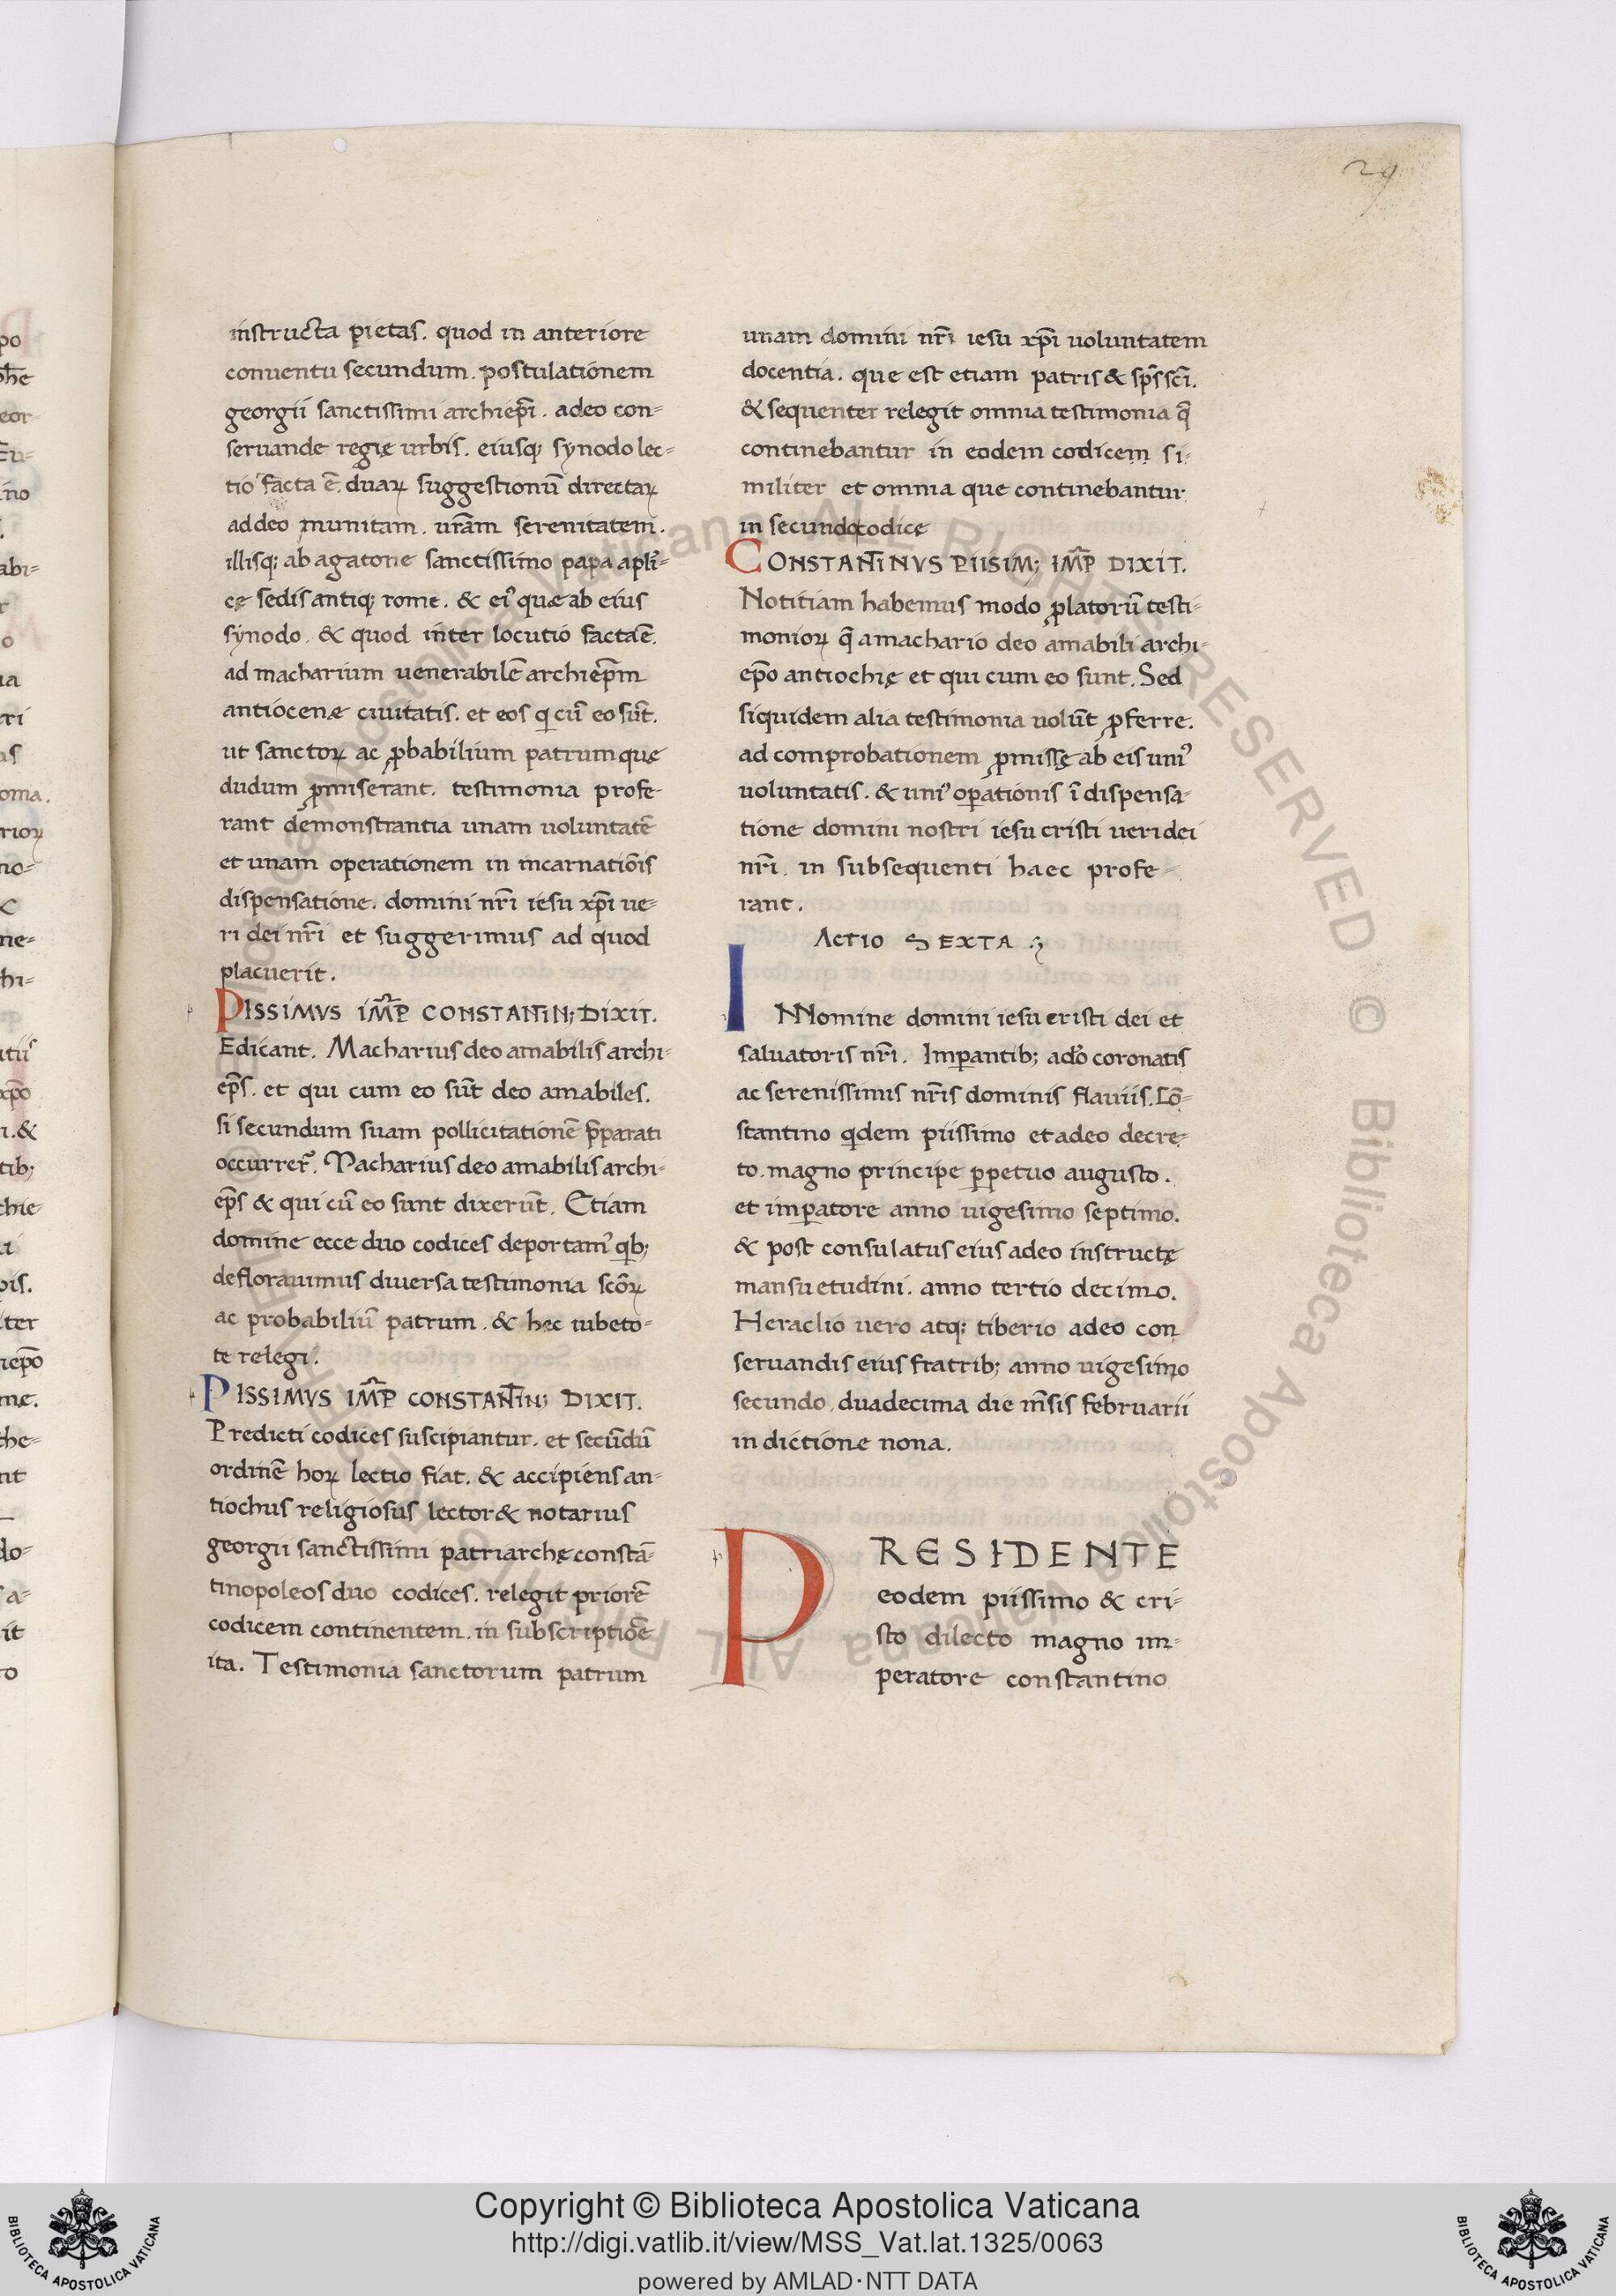 29
instructa pietas. quod in anteriore
conuentu secundum. postulationem
georgii sanctissimi archiep̄i. adeo con=
seruande regię urbis. eiusq; synodo lec=
tio facta ē. duaꝝ suggestionū directaꝝ
addeo munitam. urām serenitatem.
illisq; ab agatone sanctissimo papa apl̄i=
cę sedis antiq; rome. & eiꝰ quæ ab eius
synodo. & quod inter locutio facta ē.
ad macharium uenerabilē archiep̄m
antiocenæ ciuitatis. et eos q cū eo sūt.
ut sanctoꝝ ac ꝓbabilium patrum quę
dudum ꝓmiserant. testimonia profe-
rant demonstrantia unam uoluntatē
et unam operationem in incarnatiōis
dispensatione. domini nr̄i iesu xp̄i ue=
ri dei nr̄i et suggerimus ad quod
placuerit.
PISSIMVS IM̄P CONSTANTIN; DIXIT.
Edicant. Macharius deo amabilis archi-
ep̄s. et qui cum eo sūt deo amabiles.
si secundum suam pollicitationē p̄parati
occurrer̄. Macharius deo amabilis archi-
ep̄s & qui cū eo sunt dixerūt. Etiam
domine ecce duo codices deportamꝰ qb;
deflorauimus diuersa testimonia scōꝝ
ac probabiliū patrum. & hec iubeto-
te relegi.
PISSIMVS IM̄P CONSTANTIN; DIXIT.
Predicti codices suscipiantur. et secūdū
ordinē hoꝝ lectio fiat. & accipiens an=
tiochus religiosus lector & notarius
georgii sanctissimi patriarchę constā=
tinopoleos duo codices. relegit priorē
codicem continentem. in subscriptiōe
ita. Testimonia sanctorum patrum
unam domini nr̄i iesu xp̄i uoluntatem
docentia. que est etiam patris & sp̄s sc̄i.
& sequenter relegit omnia testimonia q̄
continebantur in eodem codicem si-
militer et omnia que continebantur
in secundo codice
CONSTANTINVS PIISIM; IM̄P DIXIT.
Notitiam habemus modo ꝓlatorū testi-
monioꝝ q̄ a machario deo amabili archi-
ep̄o antiochię et qui cum eo sunt. Sed
siquidem alia testimonia uolūt ꝓferre.
ad comprobationem ꝓmissę ab eis uniꝰ
uoluntatis. & uniꝰ oꝑationis ī dispensa-
tione domini nostri iesu cristi ueri dei
nr̄i. in subsequenti haec profe-
rant.
ACTIO SEXTA
IN Nomine domini iesu cristi dei et
saluatoris nr̄i. Imꝑantib; ado̅ coronatis
ac serenissimis nr̄is dominis flauiis. Cō=
stantino qdem piissimo et adeo decre-
to. magno principe ꝑpetuo augusto.
et imꝑatore anno uigesimo septimo.
& post consulatus eius adeo instructę
mansuetudini. anno tertio decimo.
Heraclio uero atq; tiberio adeo con
seruandis eius fratrib; anno uigesimo
secundo. duadecima die m̄sis februarii
indictione nona.
PRESIDENTE
eodem piissimo & cri-
sto dilecto magno im-
peratore constantino
Copyright © Biblioteca Apostolica Vaticana
http://digi.vatlib.it/view/MSS_Vat.lat.1325/0063
powered by AMLAD·NTT DATA
BIBLIOTECA APOSTOLICA VATICANA
BIBLIOTECA APOSTOLICA VATICANA